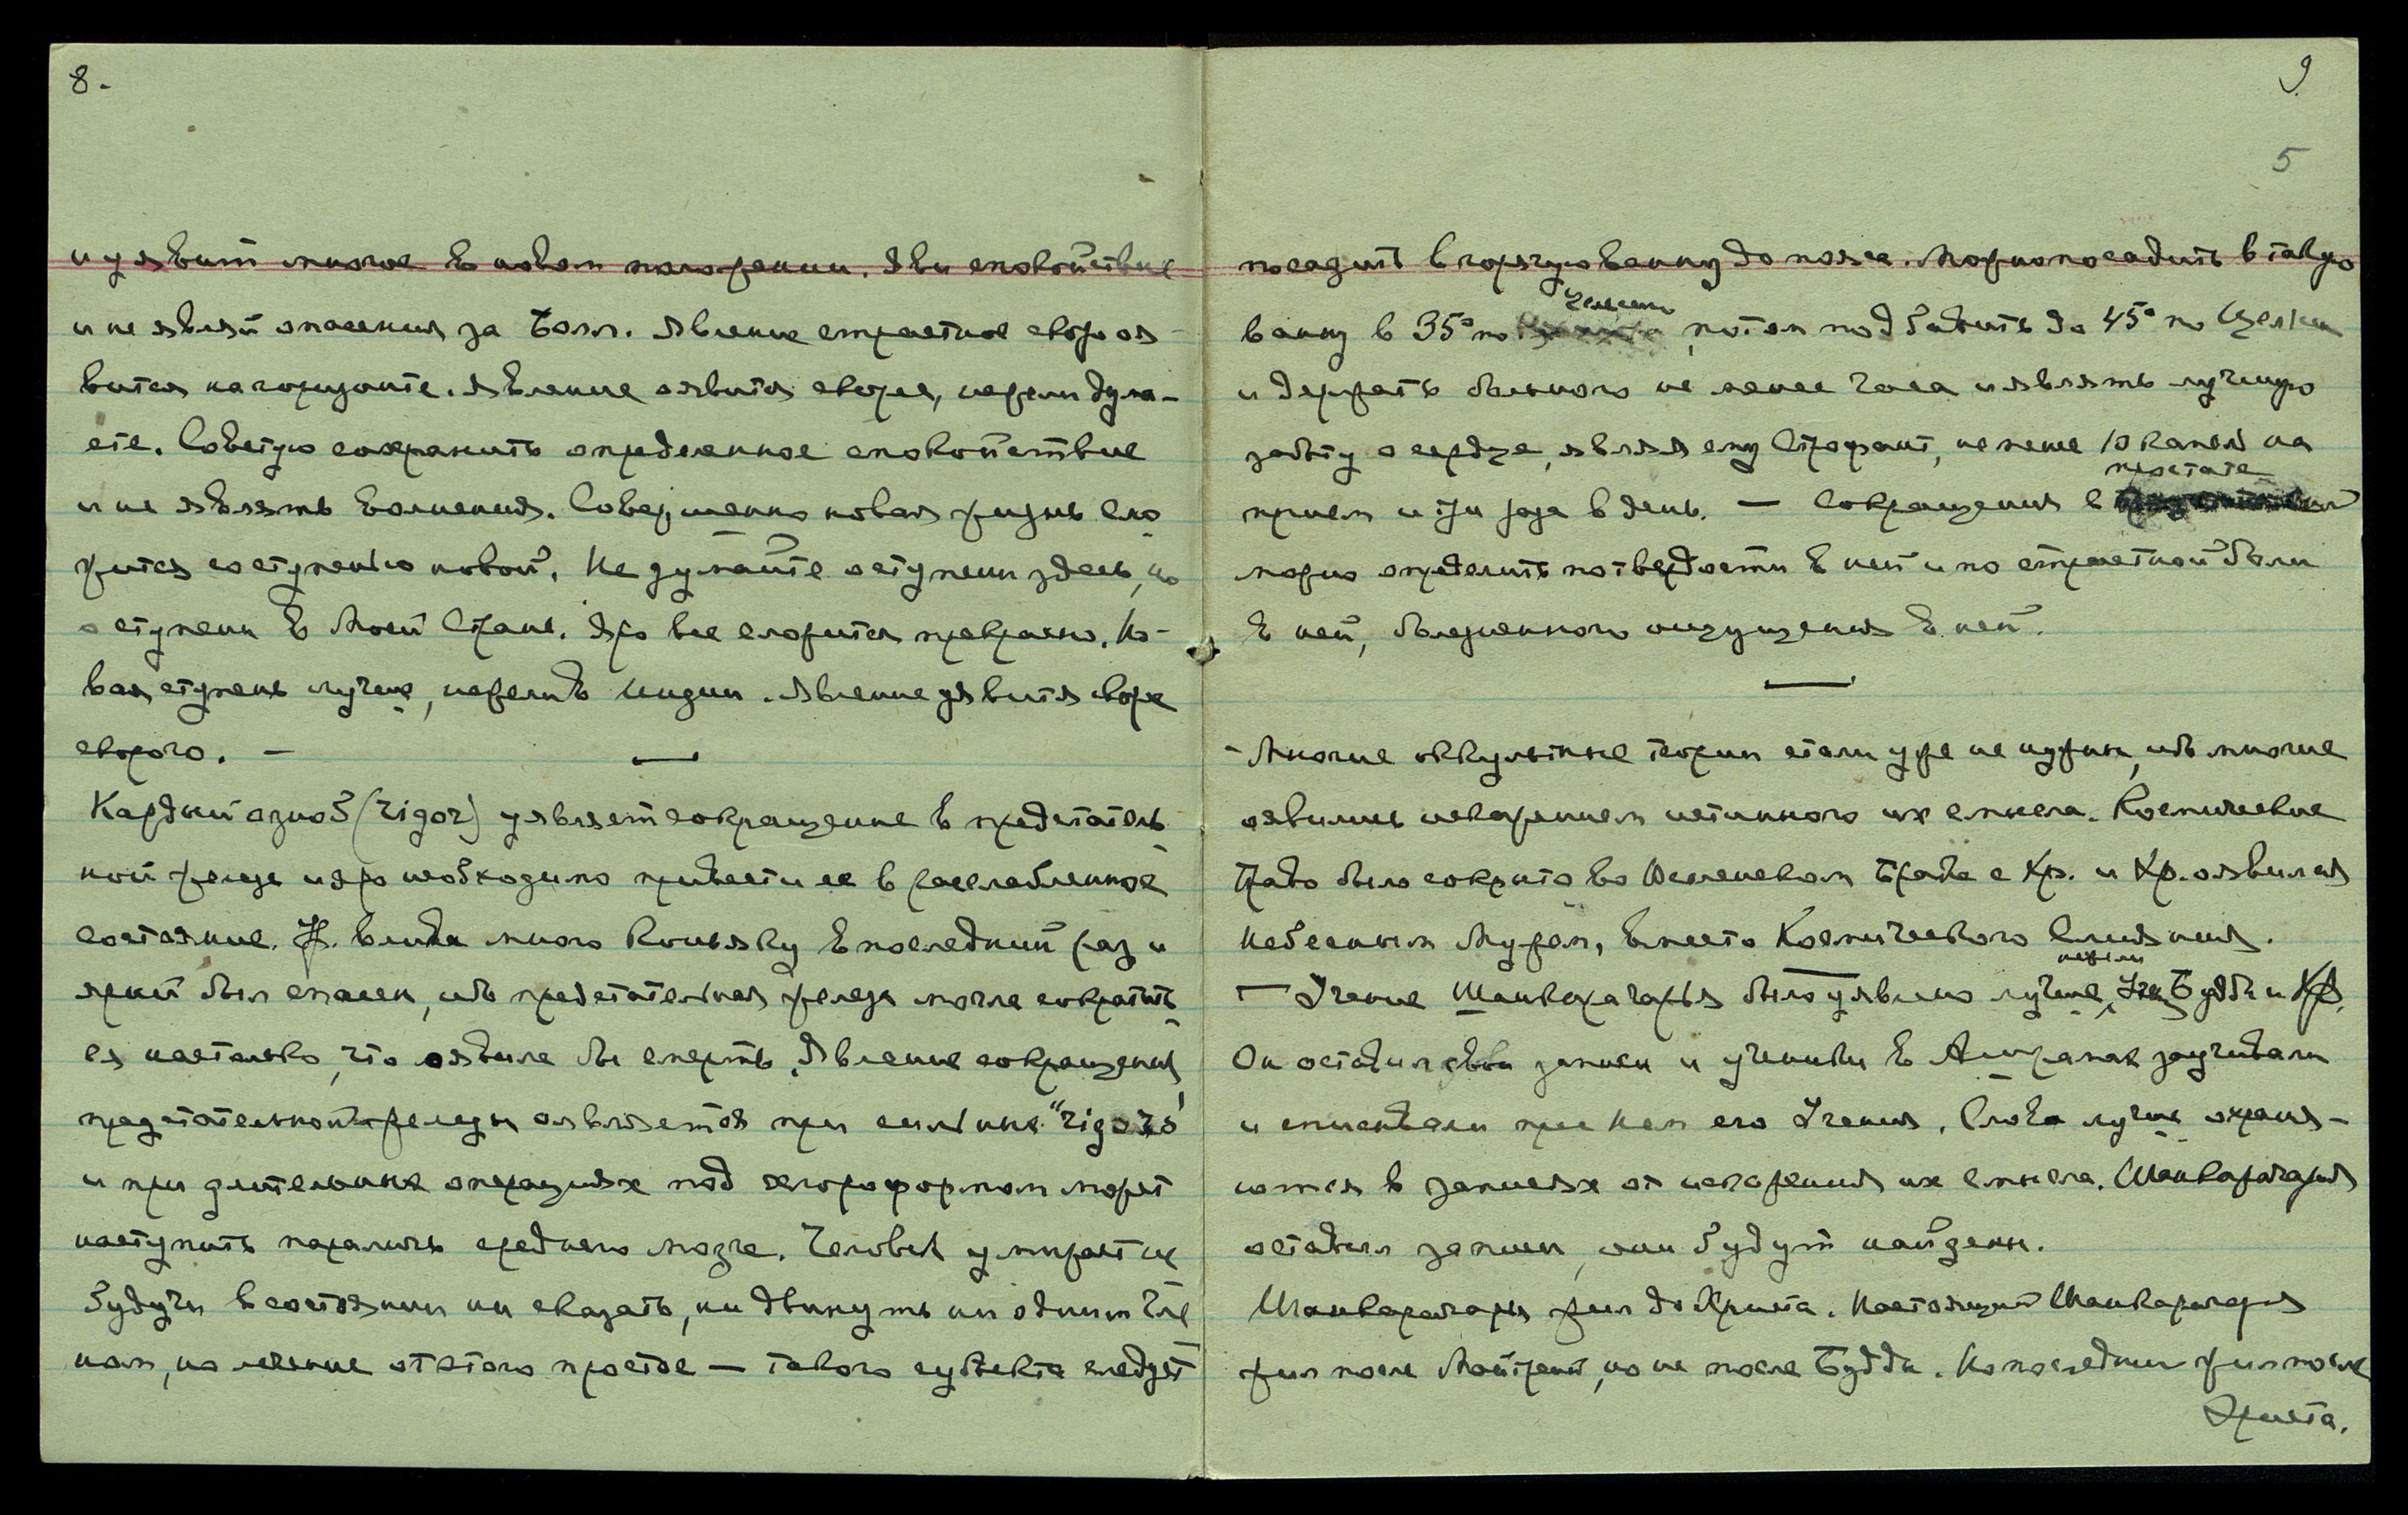 8.
и уявит многое в новом положении. Яви спокойствие
и не являй опасения за Болл. Явление страстное скоро оя-
вится на горизонте. Явление оявится скорее, нежели дума-
ете. Советую сохранить определенное спокойствие
и не являть волнения. Совершенно новая жизнь сло
жится со ступенью новой. Не думайте о ступени здесь, но
о ступени в Моей Стране. Яро все сложится прекрасно. Но-
вая ступень лучше, нежели в Индии. Явление уявится скоре
скорого. —
Каждый озноб (rigor) уявляет сокращение в предстатель
ной железе и яро необходимо привести ее в расслабленное
состояние. Я. влила много коньяку в последний раз и
яркий был спасен, ибо предстательная железа могла сократить
ся настолько, что оявила бы смерть. Явление сокращения
предстательной железы оявляется при сильных "rigors"
и при длительных операциях под хлороформом может
наступить паралич среднего мозга. Человек умирает не
будучи в состоянии ни сказать, ни двинуть ни одним чле
ном, но лечение от этого простое — такого субъекта следует
9.
5
посадить в горячую ванну до пояса. Можно посадить в такую
ванну в 35° по Цельсию, потом подбавить до 45° по Цельсию
и держать больного не менее часа и являть лучшую
заботу о сердце, являя ему Строфант, не менее 10 капель на
прием и три раза в день. — Сокращения в простате
можно определить по твердости в ней и по страстной боли
в ней, болезненного ощущения в ней.
- Многие оккультные теории стали уже не нужны, ибо многие
оявились искажением истинного их смысла. Космическое
Право было сокрыто во Вселенском Браке с Хр. и Хр. оявился
Небесным Мужем, вместо Космического Слияния.
— Учение Шанкарачарья было уявлено лучше, нежели Уч. Будды и Хр.
Он оставил свои записи и ученики в Ашрамах заучивали
и списывали при нем его Учения. Слова лучше охраня-
ются в записях от искажения их смысла. Шанкарачария
оставил записи, они будут найдены.
Шанкарачарья жил до Христа. Настоящий Шанкарачария
жил после Майтрейи, но не после Будды. Но последний жил после
Христа.